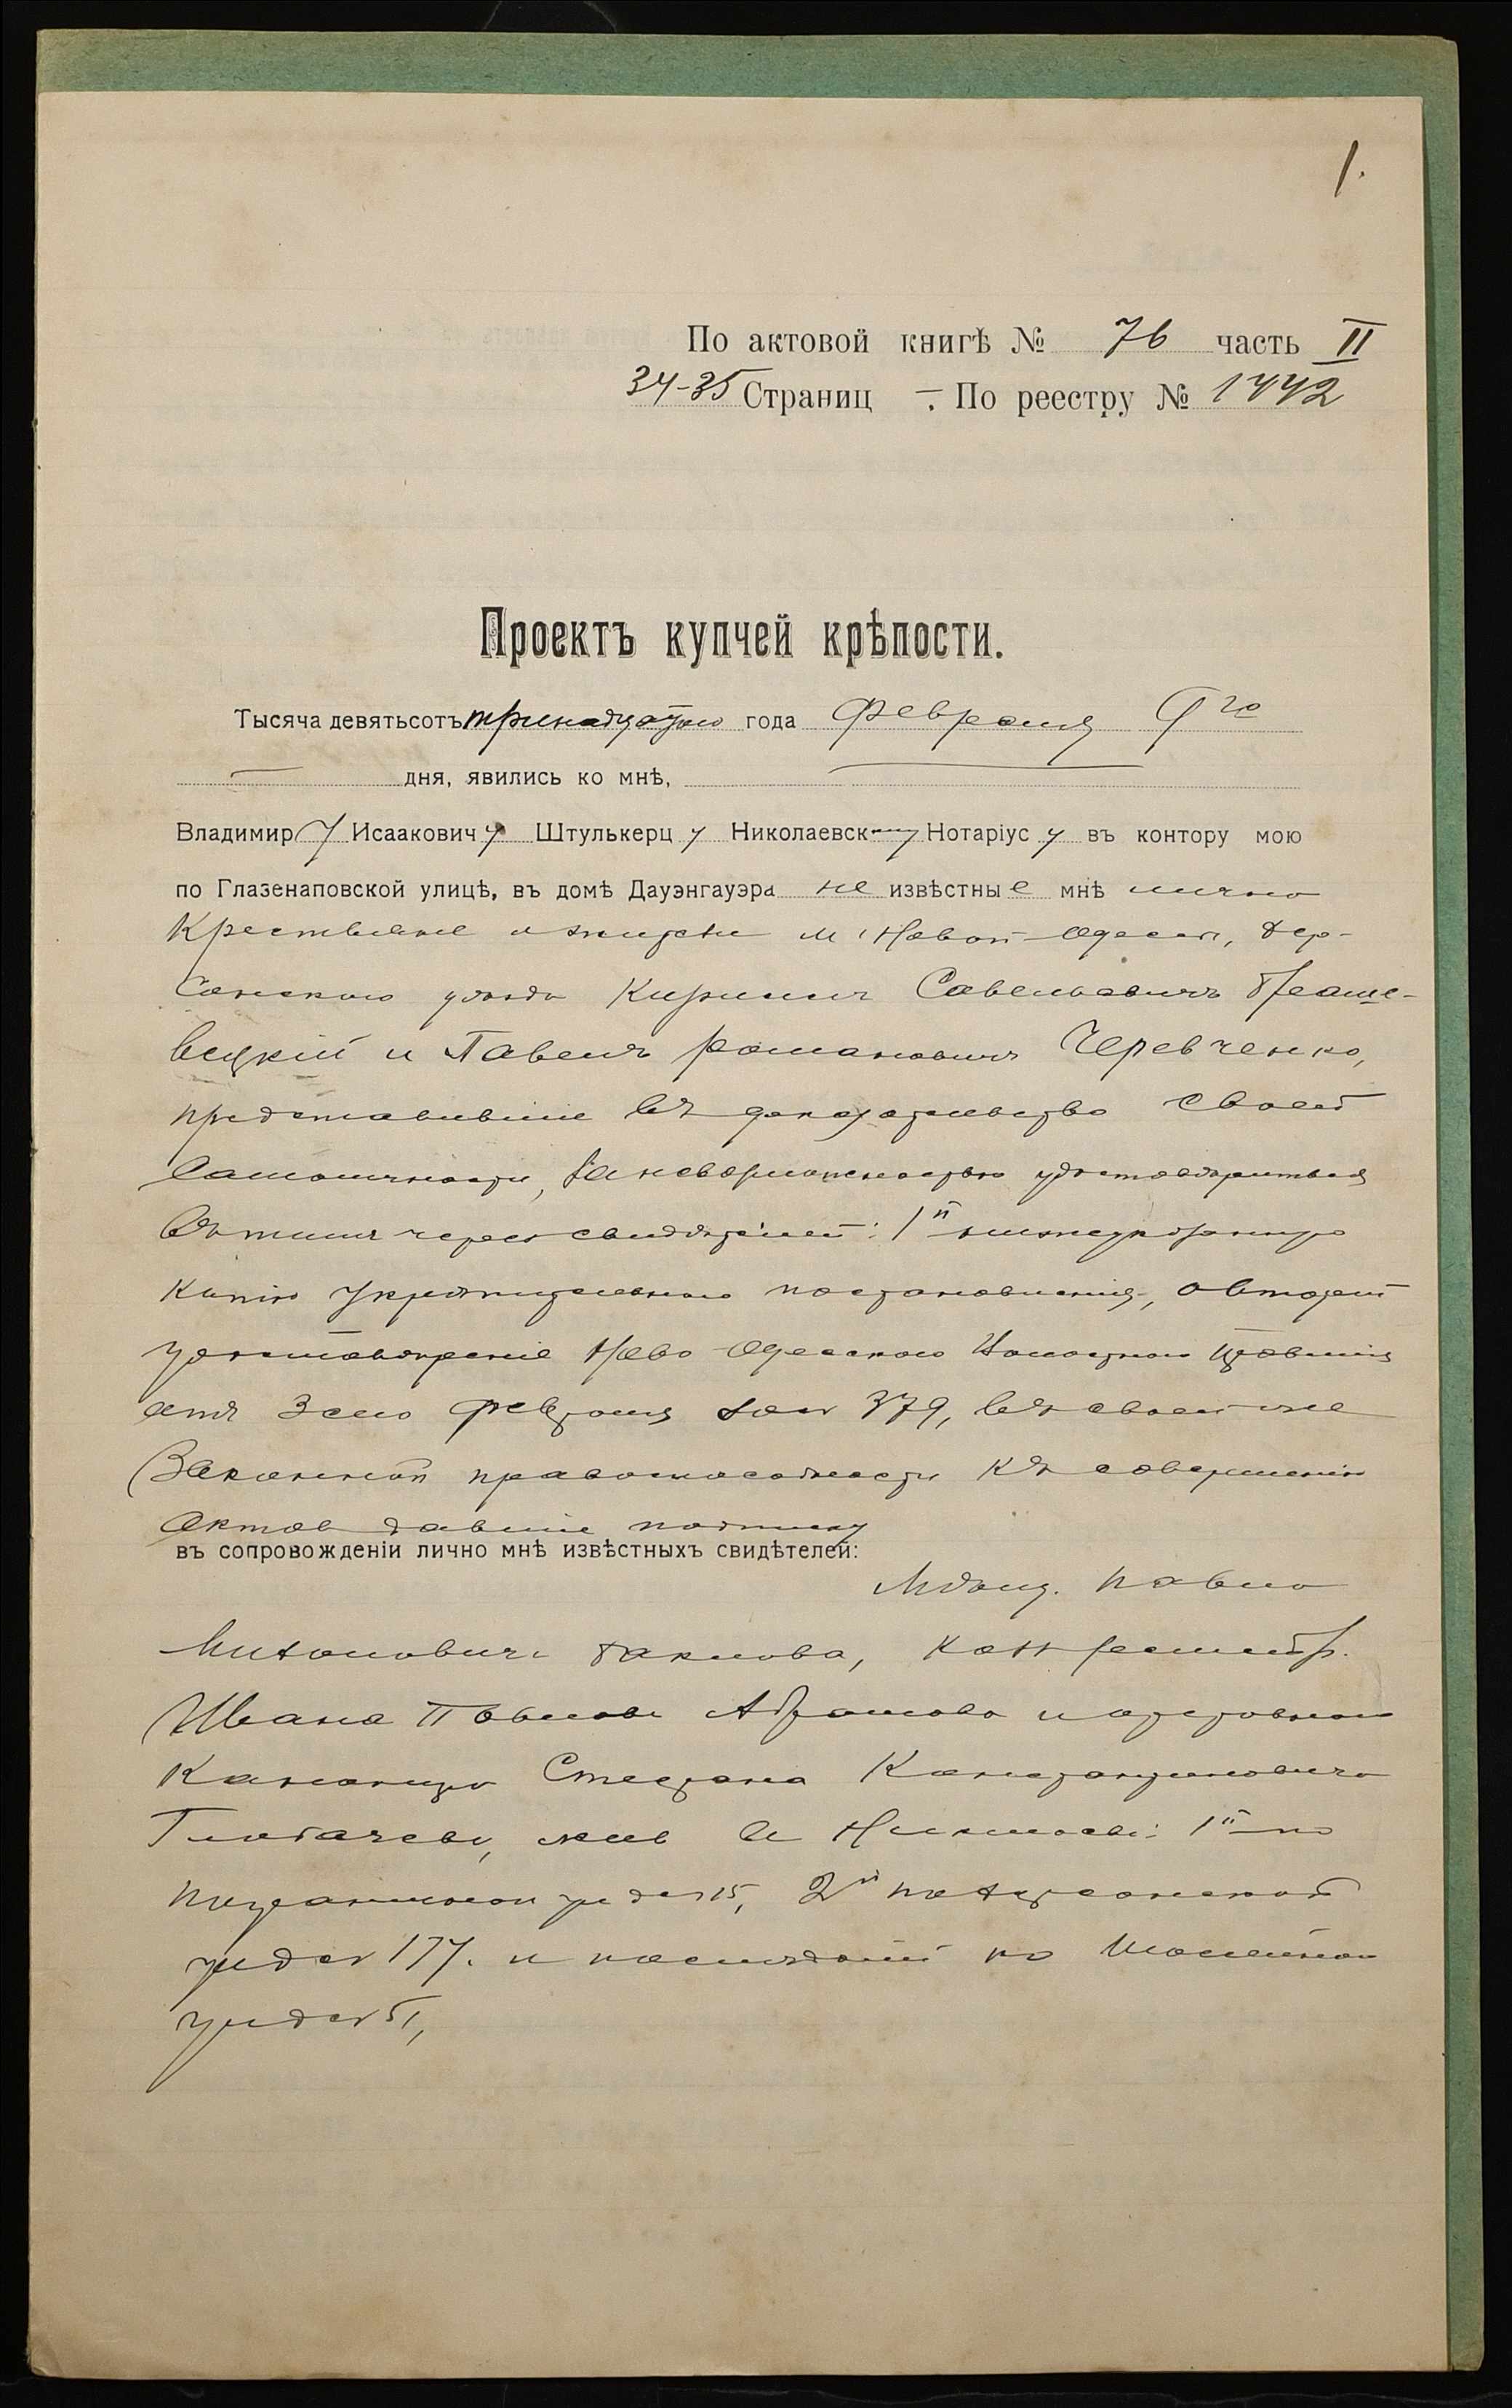 1.
По актовой книгѣ № 76 часть II
34-35 Страниц —. По реестру № 1442
Проектъ купчей крѣпости.
Тысяча девятьсотъ тринадцатаго года Февраля 9го
дня, явились ко мнѣ,
Владимиру Исааковичу Штулькерцу Николаевскому Нотаріусу въ контору мою
по Глазенаповской улицѣ, въ домѣ Дауэнгауэра не извѣстные мнѣ лично
Крестьяне и жители м. Новой Одессы, Хер-
сонскаго уѣзда Кириллъ Савельевичъ
и Павелъ Романовичъ Черевченко,
представившіе въ доказательство своей
самоличности, за невозможностью удостовѣриться
въ таковой черезъ свидѣтелей: 1й нижеуказанную
копію укрѣпительнаго постановленія, а второй
удостовѣреніе Ново-Одесскаго Волостного Правленія
отъ 3сего Февраля за № 379, въ своей же
законной правоспособности къ совершенію
актовъ давшіе подписку
въ сопровожденіи лично мнѣ извѣстныхъ свидѣтелей:
Мѣщ. Павла
Ивана Павлова и отставного
Степана Константиновича
жив. въ Николаевѣ: 1й по
д № 15, 2й по Херсонской
ул д № 177. и послѣдній по
ул д №